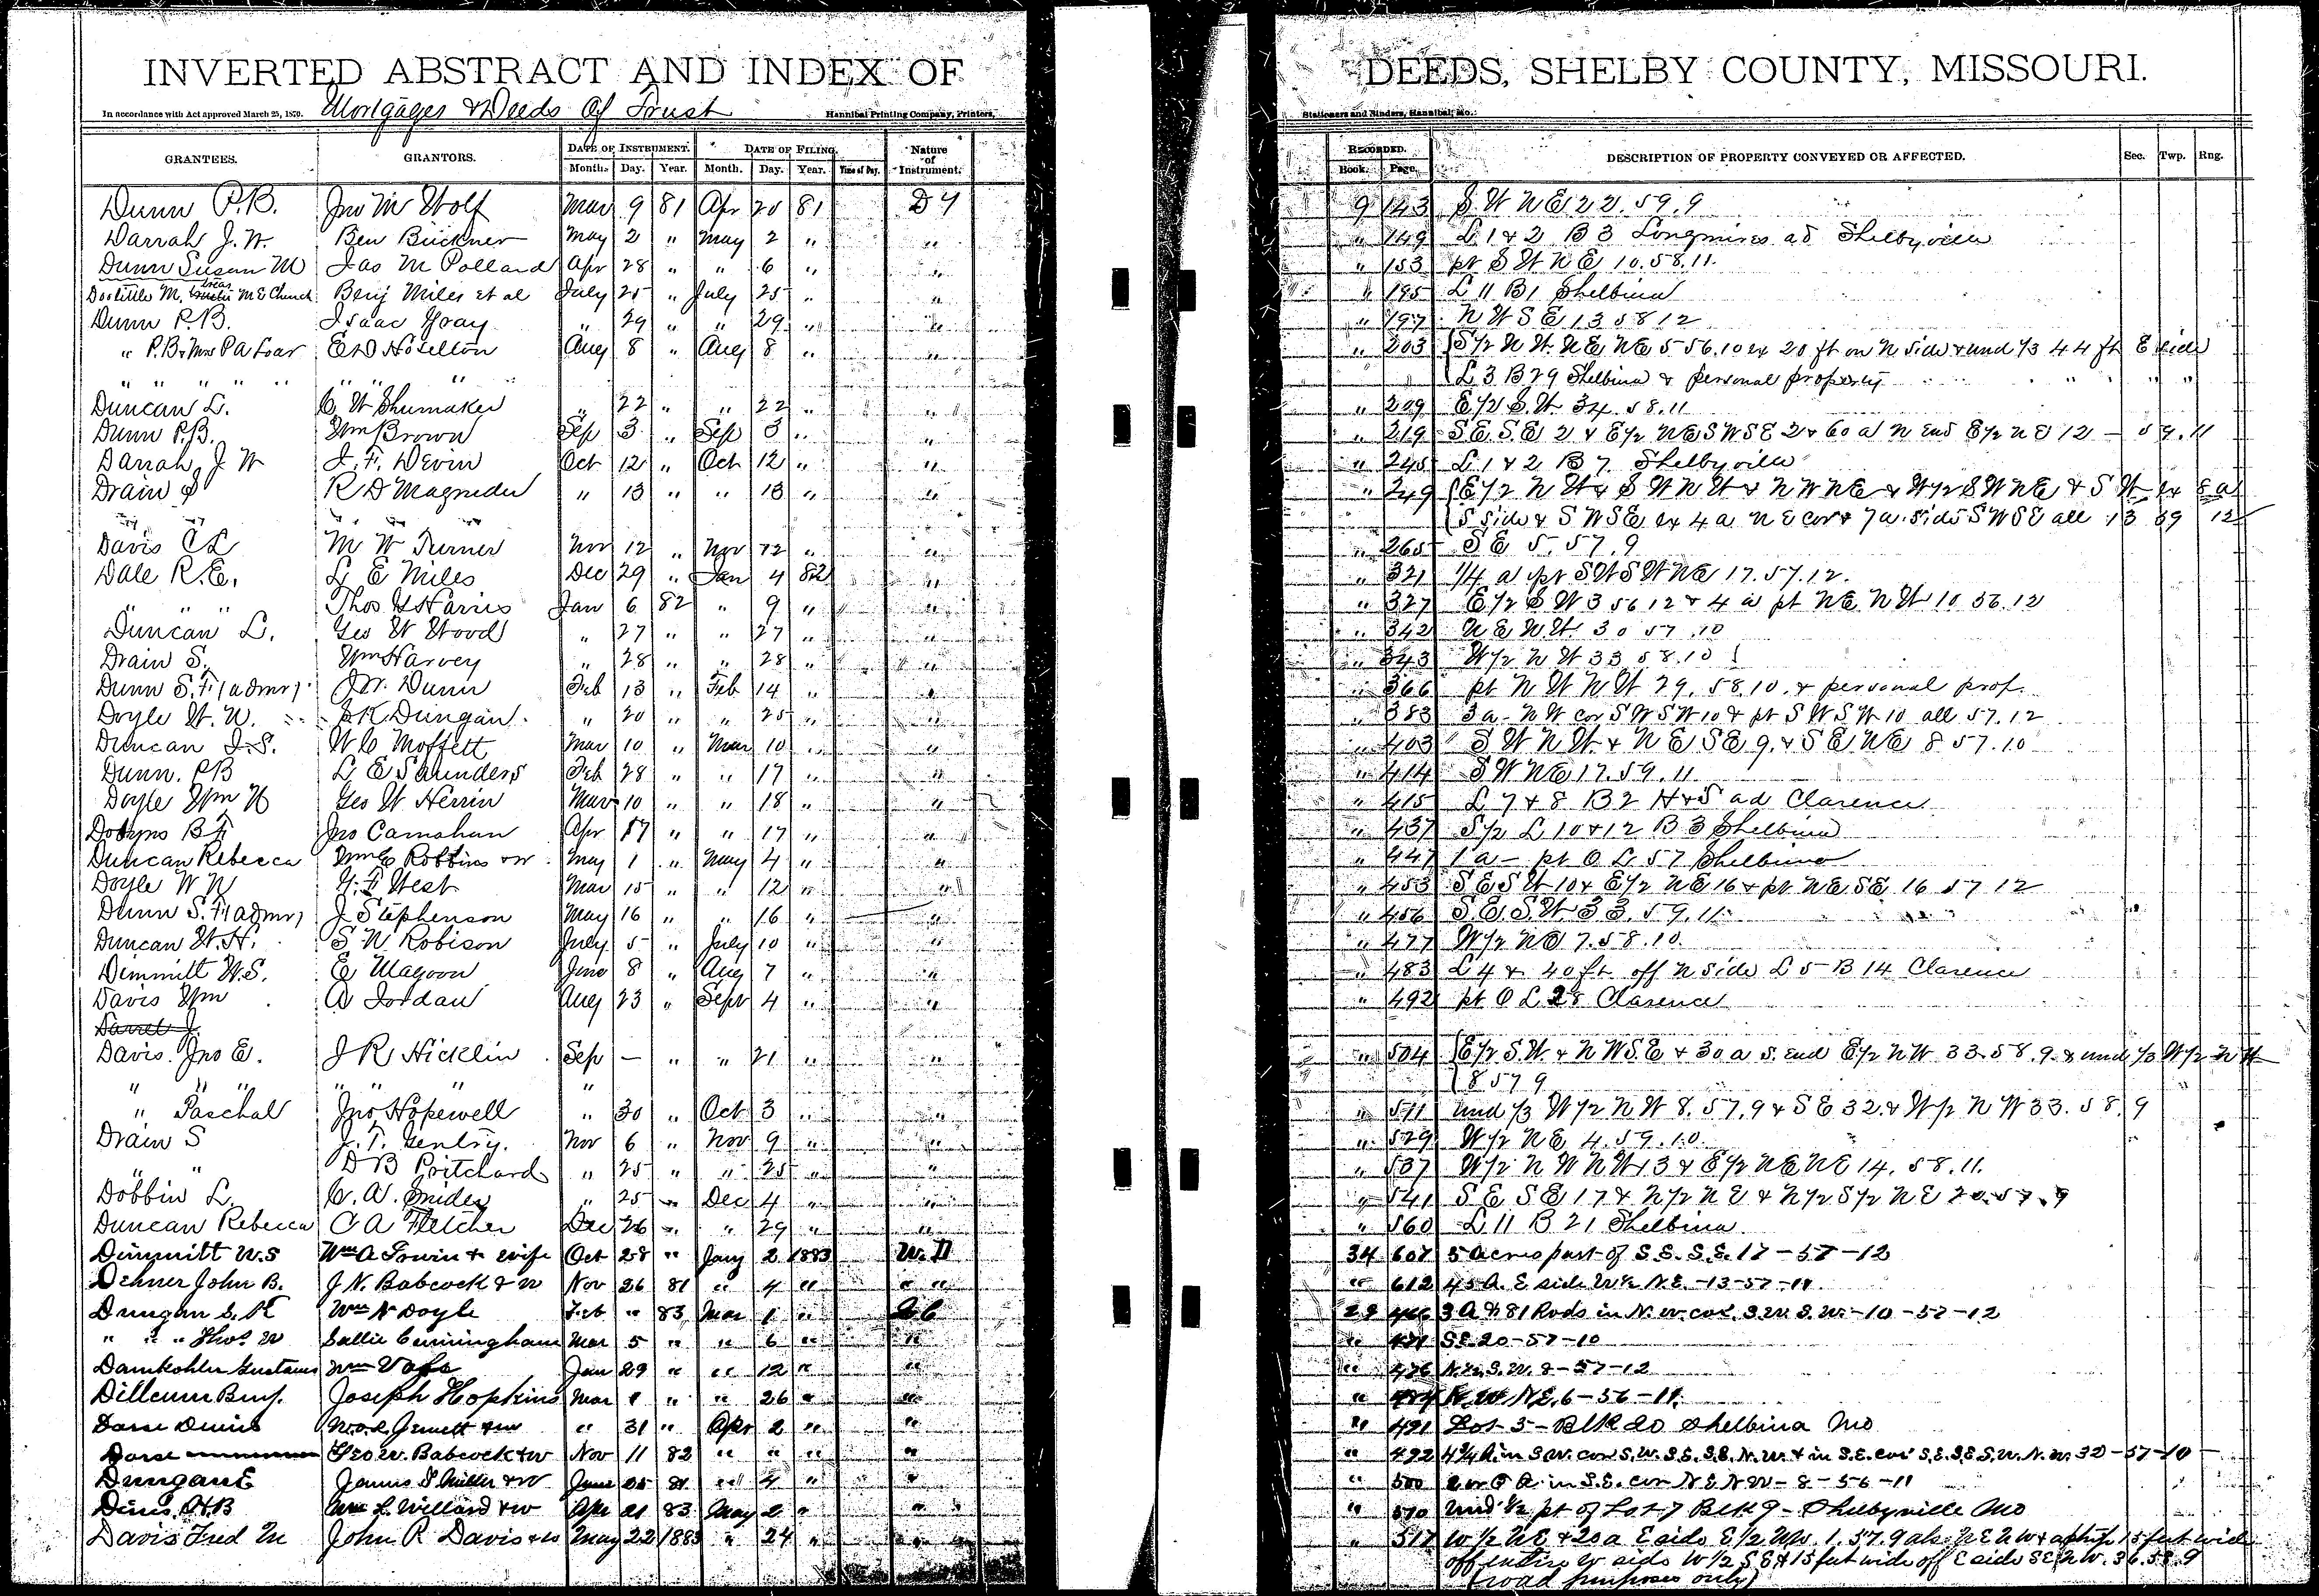 INVERTED ABSTRACT AND INDEX OF DEEDS, SHELBY COUNTY, MISSOURI.
In accordance with Act approved March 25, 1870. Mortgages & Deeds Of Trust Hannibal Printing Company, Printers, Stationers and Binders, Hannibal, Mo.
GRANTEES. GRANTORS. DATE OF INSTRUMENT. DATE OF FILING. Nature of Instrument. RECORDED. DESCRIPTION OF PROPERTY CONVEYED OR AFFECTED. Sec. Twp. Rng.
Month. Day. Year. Month. Day. Year. Time of Day. Book. Page.
Dunn P.B. Jno M Wolf Mar 9 81 Apr 20 81 D 9 143 S W N E 22. 59. 9
Darrah J. W. Ben Buckner May 2 " May 2 " " " 149 L 1 & 2 B 3 Longmires ad Shelbyville
Dunn Susan M Jas M Pollard Apr 28 " " 6 " " " 153 pt S W N E 10. 58. 11.
Doolittle M, M E Church Benj Miles et al July 25 " July 25 " " " 195 L 11 B 1 Shelbina
Dunn P.B. Isaac Gray " 29 " " 29 " " " 197 N W S E 13 58 12
" P.B. & Mrs P A Foar E D Hoselton Aug 8 " Aug 8 " " " 203 S/2 N W. N E, N E 5 56. 10 ex 20 ft on N side & und 1/3 44 ft E side
" " " " " " " " L 3 B 29 Shelbina & personal property " " "
Duncan L. C W Shumaker " 22 " " 22 " " " 209 E/2 S. W 34. 58. 11
Dunn P.B. Wm Brown Sep 3 " Sep 3 " " " 219 S E. S. E 2 & E/2 N E S W S E 2 & 60 a N End E/2 N E 12 - 59. 11
Darrah J W J. F. Devin Oct 12 " Oct 12 " " " 245 L 1 & 2 B 7 Shelbyville
Drain S R D Magruder " 13 " " 13 " " " 249 E/2 N W & S W N W & N W N E & W/2 S W N E & S W ex 8 a
" " " " " S side & S W S E ex 4 a N E cor & 7 a. side S W S E all 13 59 12
Davis C L M W Turner Nov 12 " Nov 12 " " " 265 S E 5. 57. 9
Dale R. E. L E Miles Dec 29 " Jan 4 82 " " 321 1/4 a pt S W S W N E 17. 57. 12.
" " " Thos G Harris Jan 6 82 " 9 " " " 327 E/2 S W 3 56 12 & 4 a pt N E. N W 10. 56. 12
Duncan L. Geo W Wood " 27 " " 27 " " " 342 N E N. W. 30 57. 10
Drain S. Wm Harvey " 28 " " 28 " " " 343 W/2 N W 33 58. 10
Dunn S. F. (admr) J W. Dunn Feb 13 " Feb 14 " " " 366 pt N W N W 29. 58. 10. & personal prop.
Doyle W. N. J K Dungan. " 20 " " 25 " " " 383 3 a - N W cor S W S W 10 & pt S W S W 10 all 57. 12
Duncan J. S. W C Moffett Mar 10 " Mar 10 " " " 403 S W N W & N E S E 9. & S E N E 8 57. 10
Dunn. P B L E Saunders Feb 28 " " 17 " " " 414 S W N E 17. 59. 11
Doyle Wm N Geo W Herrin Mar 10 " " 18 " " " 415 L 7 & 8 B 2 H & S ad Clarence
Dobyns B F Jno Carnahan Apr 17 " " 17 " " " 437 S/2 L 10 & 12 B 3 Shelbina
Duncan Rebecca Wm C Robbins & w May 1 " May 4 " " " 447 1 a - pt O L 57 Shelbina
Doyle W N G. F West Mar 15 " " 12 " " " 453 S E S W 10 & E/2 N E 16 & pt N E. S E 16 57 12
Dunn S. F (admr) J Stephenson May 16 " " 16 " " " 456 S. E. S. W 33. 59. 11.
Duncan W. H. S N Robison July 5 " July 10 " " " 477 W/2 N E 7. 58. 10.
Dimmitt W. S. E Magoon June 8 " Aug 7 " " " 483 L 4 & 40 ft off N side L 5 - B 14 Clarence
Davis Wm A Jordan Aug 23 " Sept 4 " " " 492 pt O L 28 Clarence
Darrel J.
Davis. Jno E. J R Hicklin Sep - " " 21 " " " 504 E/2 S. W. & N W S. E & 30 a s. end E/2 N W 33. 58. 9. & und 1/3 W/2 N W
" " " " " " " 8 57 9
" Paschal Jno Hopewell " 30 " Oct 3 " " " 511 und 1/3 W/2 N W 8. 57. 9 & S E 32. & W/2 N W 33. 58. 9
Drain S J. T. Gentry. Nov 6 " Nov 9 " " " 529 W/2 N E, 4. 59. 10.
" " D B Pritchard " 25 " " 25 " " " 537 W/2 N W N W 13 & E/2 N E N E 14. 58. 11.
Dobbin L. C. A. Snider " 25 " Dec 4 " " " 541 S E S E 17 & N/2 N E & N/2 S/2 N E 20. 57. 9
Duncan Rebecca C A Fletcher Dec 26 " " 29 " " " 560 L 11 B 21 Shelbina
Dimmitt W. S Wm A Irwin & wife Oct 28 " Jany 2 1883 W. D 34 607 5 acres part of S. E. S. E. 17 - 57 - 12
Dehner John B. J. N. Babcock & w Nov 26 81 " 4 " " " " 612 45 A. E side W 1/2 N. E. - 13 - 57 - 11.
Dungan S. K Wm N Doyle Feb " 83 Mar 1 " 29 466 3 A & 81 Rods in N. W. cor. S. W. S. W. - 10 - 57 - 12
" " " Thos. W Sallie Cunningham Mar 5 " " 6 " " " 471 S. E. 20 - 57 - 10
Damkohler Gustavus Wm Jan 29 " " 12 " " " 476 S. W. 8 - 57 - 12
Benj. Joseph Hopkins Mar 1 " " 26 " " " N. W. N. E. 6 - 56 - 11.
Jewett & w " 31 " Apr 2 " " " 491 Lot 5 - Blk 20 Shelbina Mo
Geo. W. Babcock & w Nov 11 82 " " " " " 492 in S. W. cor S. W. S. E. S. E. N. W. & in S. E. cor S. E. S. E. S. W. N. W. 32 - 57 - 10
Dungan E James S Miller & w June 25 81 " 4 " " " 500 in S. E. cor N. E. N W - 8 - 56 - 11
Wm L. Willard & w Apr 21 83 May 2 " " " 510 Und 1/2 pt of Lot 7 Blk 9 - Shelbyville Mo
Davis Fred M John R Davis & w May 22 1883 " 24 " " 517 W 1/2 N E & 20 a E side E 1/2 N W. 1. 57. 9 also N E N W & a strip 15 feet wide
off entire W side W 1/2 S E & 15 feet wide off E side S E N W. 36. 58. 9
(road purposes only)